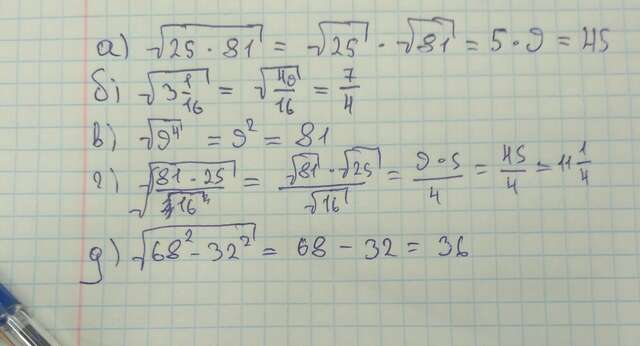 а) √(25 · 81) = √25 · √81 = 5 · 9 = 45
б) √(3 1/16) = √(49/16) = 7/4
в) √(9⁴) = 9² = 81
г) √((81 · 25)/16) = (√81 · √25)/√16 = (9 · 5)/4 = 45/4 = 11 1/4
д) √(68² - 32²) = 68 - 32 = 36